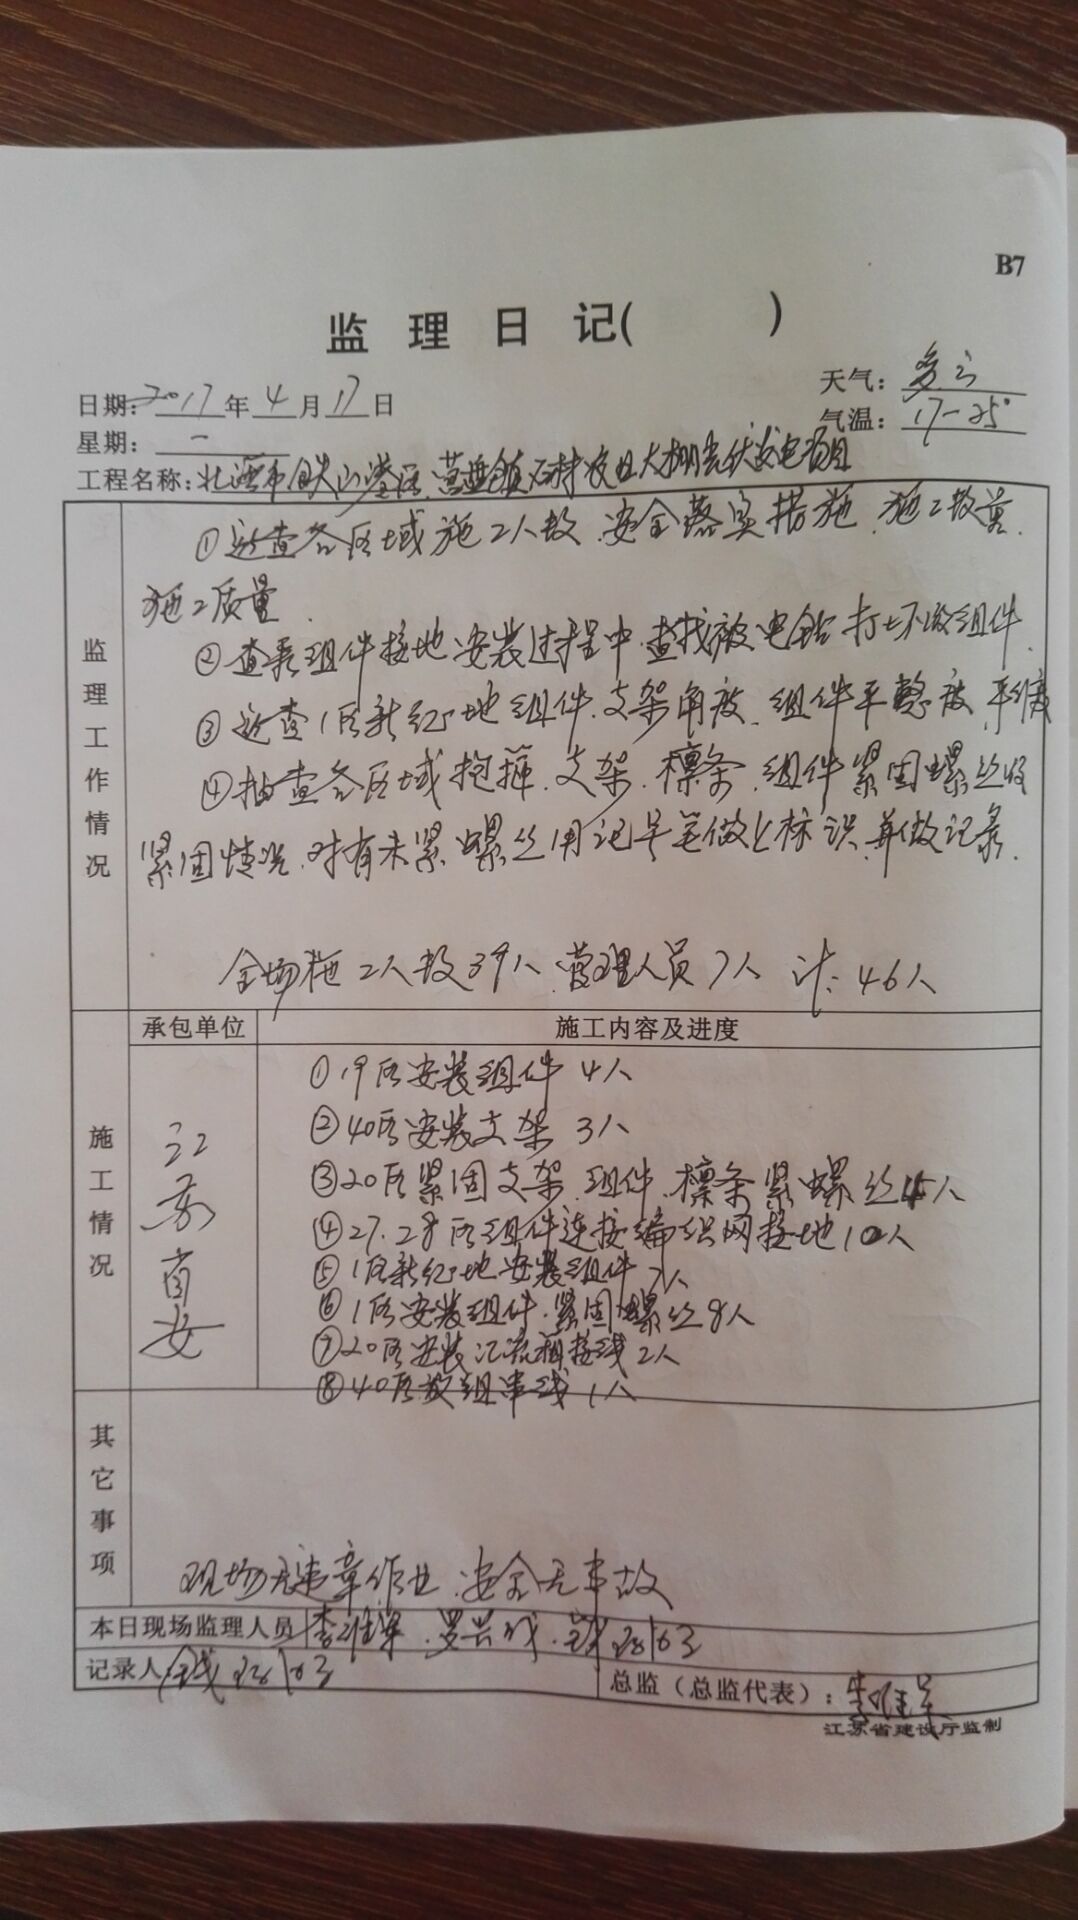 B7
监 理 日 记( )
日期: 2017 年 4 月 17 日
天气: 多云
星期: 一
气温: 17-25°
工程名称: 北海市铁山港区营盘镇石村农业大棚光伏发电项目
监理工作情况
①巡查各区域施工人数、安全落实措施、施工数量、
施工质量.
②查看组件接地安装过程中,查找被电钻打坏的组件.
③巡查1区新征地组件、支架角度、组件平整度、
④抽查各区域抱箍、支架、檩条、组件紧固螺丝
紧固情况,对有未紧螺丝用记号笔做上标识,并做记录.
全场施工人数39人、管理人员7人 计: 46人
承包单位
施工内容及进度
施工情况
江苏
①19区安装组件 4人
②40区安装支架 3人
③20区紧固支架、组件、檩条紧螺丝 人
④27.28区组件连接编织网接地10人
⑤1区新征地安装组件7人
⑥1区安装组件、紧固螺丝8人
⑦20区安装汇流箱接线2人
⑧40区放组串线1人
其它事项
现场无违章作业,安全无事故
本日现场监理人员
记录人
总监（总监代表）:
江苏省建设厅监制